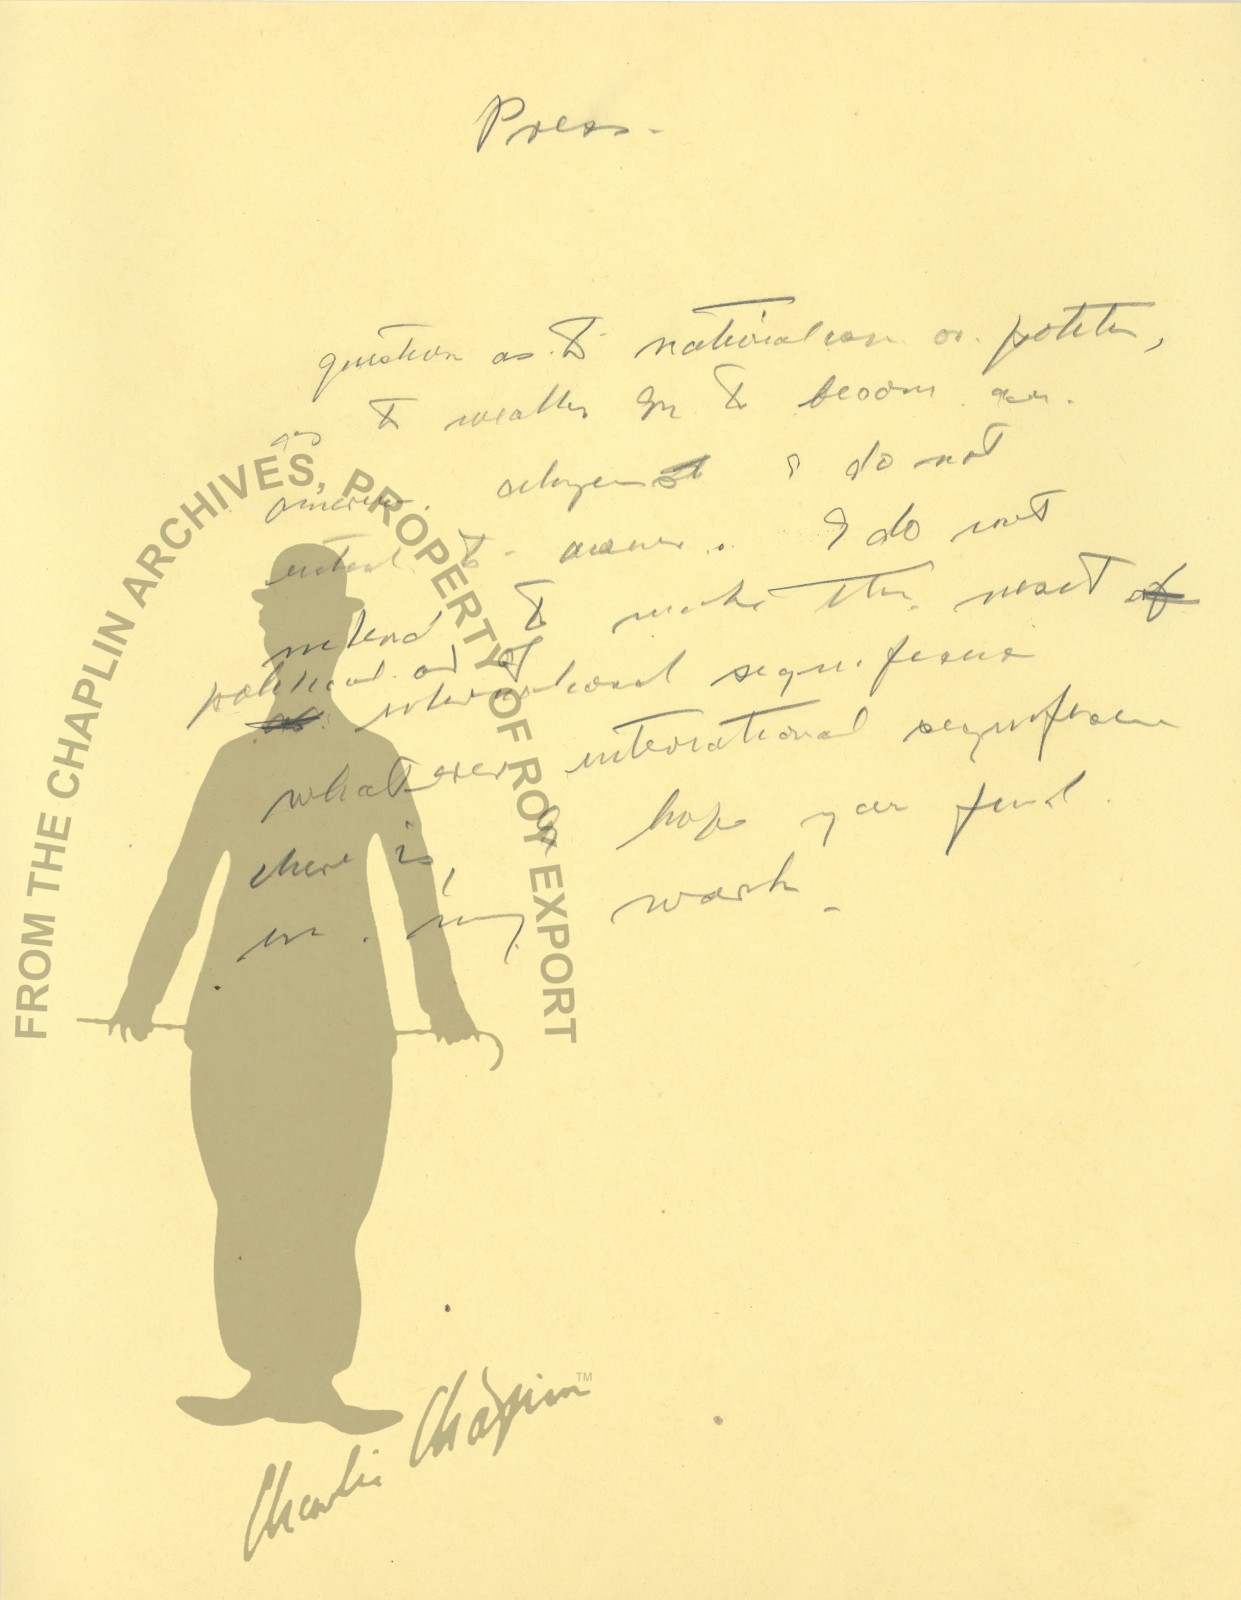 Press.
question as to nationalism or politics,
as
to weather Im to become an.
american. citizen I do not
intend to answer. I do not
intend to make this visit of
political or of
international significance
whatever international significance
there is, I hope you find
in. my work.
FROM THE CHAPLIN ARCHIVES, PROPERTY OF ROY EXPORT
Charlie Chaplin TM